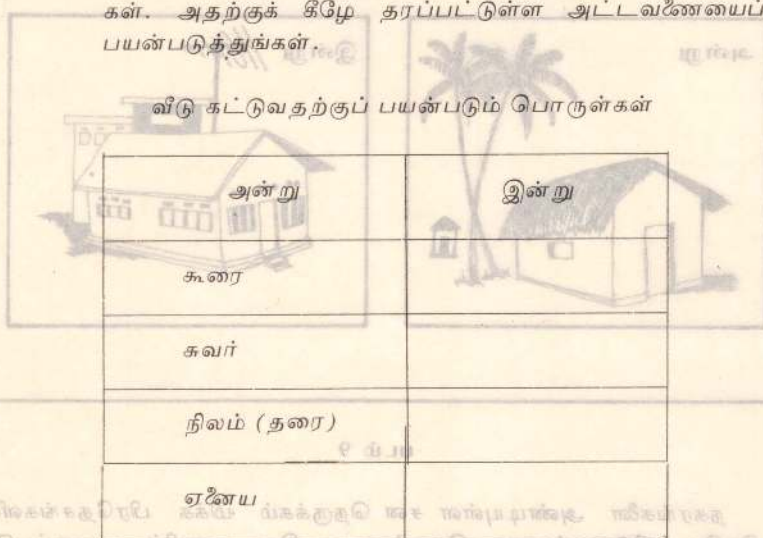 கள். அதற்குக் கீழே தரப்பட்டுள்ள அட்டவணையைப்
பயன்படுத்துங்கள்.
வீடு கட்டுவதற்குப் பயன்படும் பொருள்கள்
அன்று இன்று
கூரை
சுவர்
நிலம் (தரை)
ஏனைய